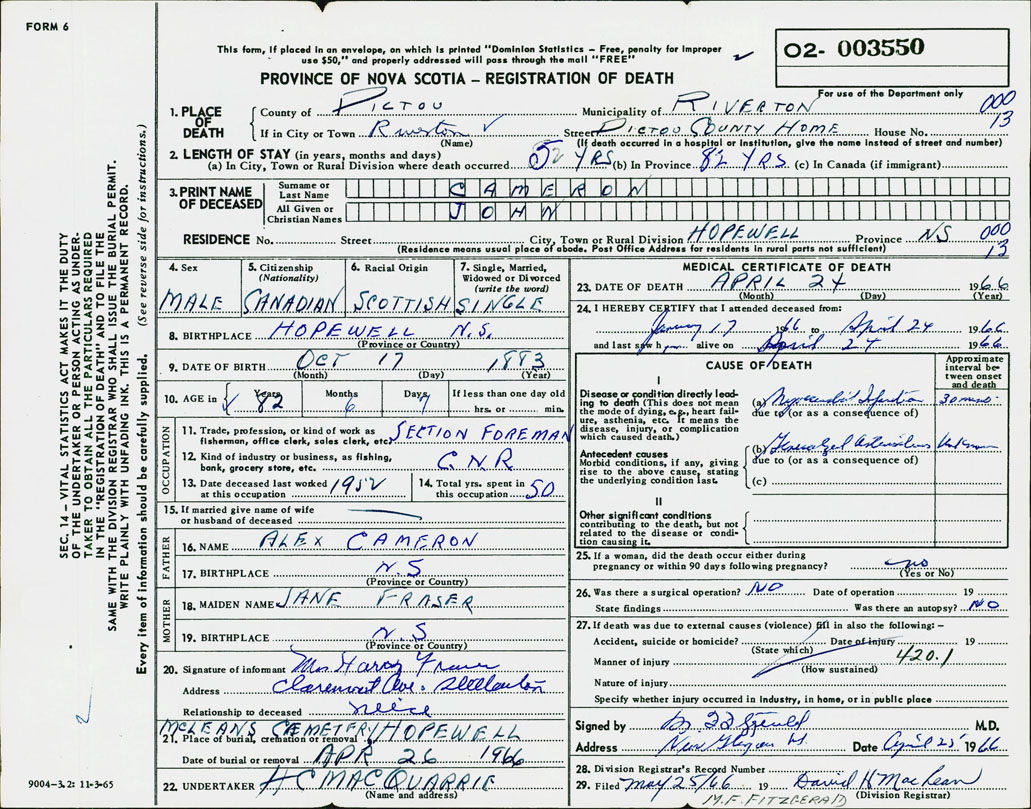 FORM 6
This form, if placed in an envelope, on which is printed "Dominion Statistics – Free, penalty for improper
use $50," and properly addressed will pass through the mail "FREE"
O2- 003550
PROVINCE OF NOVA SCOTIA – REGISTRATION OF DEATH
For use of the Department only
000
13
1. PLACE OF DEATH
County of PICTOU Municipality of RIVERTON
If in City or Town Riverton Street PICTOU COUNTY HOME House No.
(Name) (If death occurred in a hospital or institution, give the name instead of street and number)
2. LENGTH OF STAY (in years, months and days)
(a) In City, Town or Rural Division where death occurred 52 YRS (b) In Province 82 YRS (c) In Canada (if immigrant)
3. PRINT NAME OF DECEASED
Surname or Last Name CAMERON
All Given or Christian Names JOHN
RESIDENCE No. Street City, Town or Rural Division HOPEWELL Province NS 000
(Residence means usual place of abode. Post Office Address for residents in rural parts not sufficient) 13
4. Sex MALE
5. Citizenship (Nationality) CANADIAN
6. Racial Origin SCOTTISH
7. Single, Married, Widowed or Divorced (write the word) SINGLE
8. BIRTHPLACE HOPEWELL N.S.
(Province or Country)
9. DATE OF BIRTH OCT 17 1883
(Month) (Day) (Year)
10. AGE in Years 82 Months 6 Days 7 If less than one day old
hrs. or min.
OCCUPATION
11. Trade, profession, or kind of work as fisherman, office clerk, sales clerk, etc. SECTION FOREMAN
12. Kind of industry or business, as fishing, bank, grocery store, etc. C.N.R
13. Date deceased last worked at this occupation 1952
14. Total yrs. spent in this occupation 50
15. If married give name of wife or husband of deceased
FATHER
16. NAME ALEX CAMERON
17. BIRTHPLACE N.S
(Province or Country)
MOTHER
18. MAIDEN NAME JANE FRASER
19. BIRTHPLACE N.S
(Province or Country)
20. Signature of informant Mrs Harry Fraser
Address Claremont Ave. Stellarton
Relationship to deceased neice
McLEANS CEMETERY HOPEWELL
21. Place of burial, cremation or removal
Date of burial or removal APR 26 1966
22. UNDERTAKER H C MACQUARRIE
(Name and address)
MEDICAL CERTIFICATE OF DEATH
23. DATE OF DEATH APRIL 24 1966
(Month) (Day) (Year)
24. I HEREBY CERTIFY that I attended deceased from:
January 17 1966 to April 24 1966
and last saw h alive on April 24 1966
CAUSE OF DEATH
Approximate interval between onset and death
I
Disease or condition directly leading to death (This does not mean the mode of dying, e.g., heart failure, asthenia, etc. It means the disease, injury, or complication which caused death.)
(a) Myocardial Infarction 30 mins.
due to (or as a consequence of)
Antecedent causes
Morbid conditions, if any, giving rise to the above cause, stating the underlying condition last.
(b) Generalized Unknown
due to (or as a consequence of)
(c)
II
Other significant conditions
contributing to the death, but not related to the disease or condition causing it.
25. If a woman, did the death occur either during pregnancy or within 90 days following pregnancy? no
(Yes or No)
26. Was there a surgical operation? NO Date of operation 19
State findings Was there an autopsy? NO
27. If death was due to external causes (violence) fill in also the following: –
Accident, suicide or homicide? Date of injury 19
(State which)
Manner of injury 420.1
(How sustained)
Nature of injury
Specify whether injury occurred in industry, in home, or in public place
Signed by M.D.
Address New Glasgow Date April 25 1966
28. Division Registrar's Record Number
29. Filed May 25/66 19 David H MacLean
(Division Registrar)
M.F. FITZGERALD
SEC. 14 – VITAL STATISTICS ACT MAKES IT THE DUTY
OF THE UNDERTAKER OR PERSON ACTING AS UNDER-
TAKER TO OBTAIN ALL THE PARTICULARS REQUIRED
IN THE "REGISTRATION OF DEATH" AND TO FILE THE
SAME WITH THE DIVISION REGISTRAR WHO SHALL ISSUE THE BURIAL PERMIT.
WRITE PLAINLY WITH UNFADING INK. THIS IS A PERMANENT RECORD.
Every item of information should be carefully supplied. (See reverse side for instructions.)
9004–3.2: 11-3-65